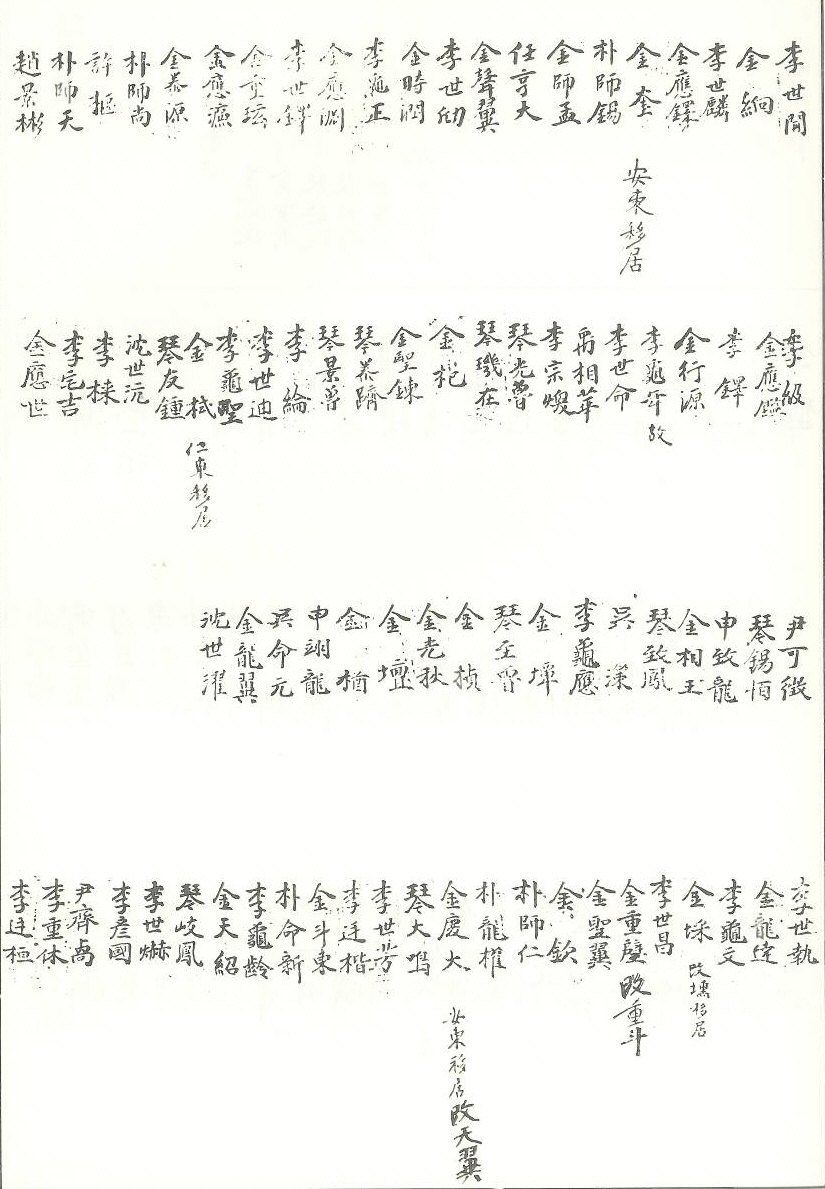 李世聞
金絅
李世麟
金應鐸
金奎 安東移居
朴師錫
金師孟
任亨大
金聲翼
李世劤
金時潤
李龜正
金應淵
李世鐸
金重玹
金應濂
金恭源
朴師尚
許樞
朴師天
趙景彬
李級
金應鑑
李鐸
金行源
李龜年 故
李世命
禹相華
李宗煥
琴光魯
琴璣在
金杞
金聖鍊
琴恭躋
琴景魯
李綸
李世迪
李龜聖
金栻 仁東移居
琴友鍾
沈世沅
李棟
李宅吉
金應世
尹可徵
琴錫恒
申致龍
金相玉
琴致鳳
吳漢
李龜應
金墠
琴玉魯
金楨
金光秋
金壇
金楢
申翊龍
吳命元
金龍翼
沈世濯
李世執
金龍達
李龜文
金埰 改壎移居
李世昌
金重璧 改重斗
金聖翼
金欽
朴師仁
朴龍櫂
金慶大 安東移居改天翼
琴大鳴
李世芳
李廷楷
金斗東
朴命新
李龜齡
金天紹
琴岐鳳
李世爀
李彦國
尹齊卨
李重休
李廷桓